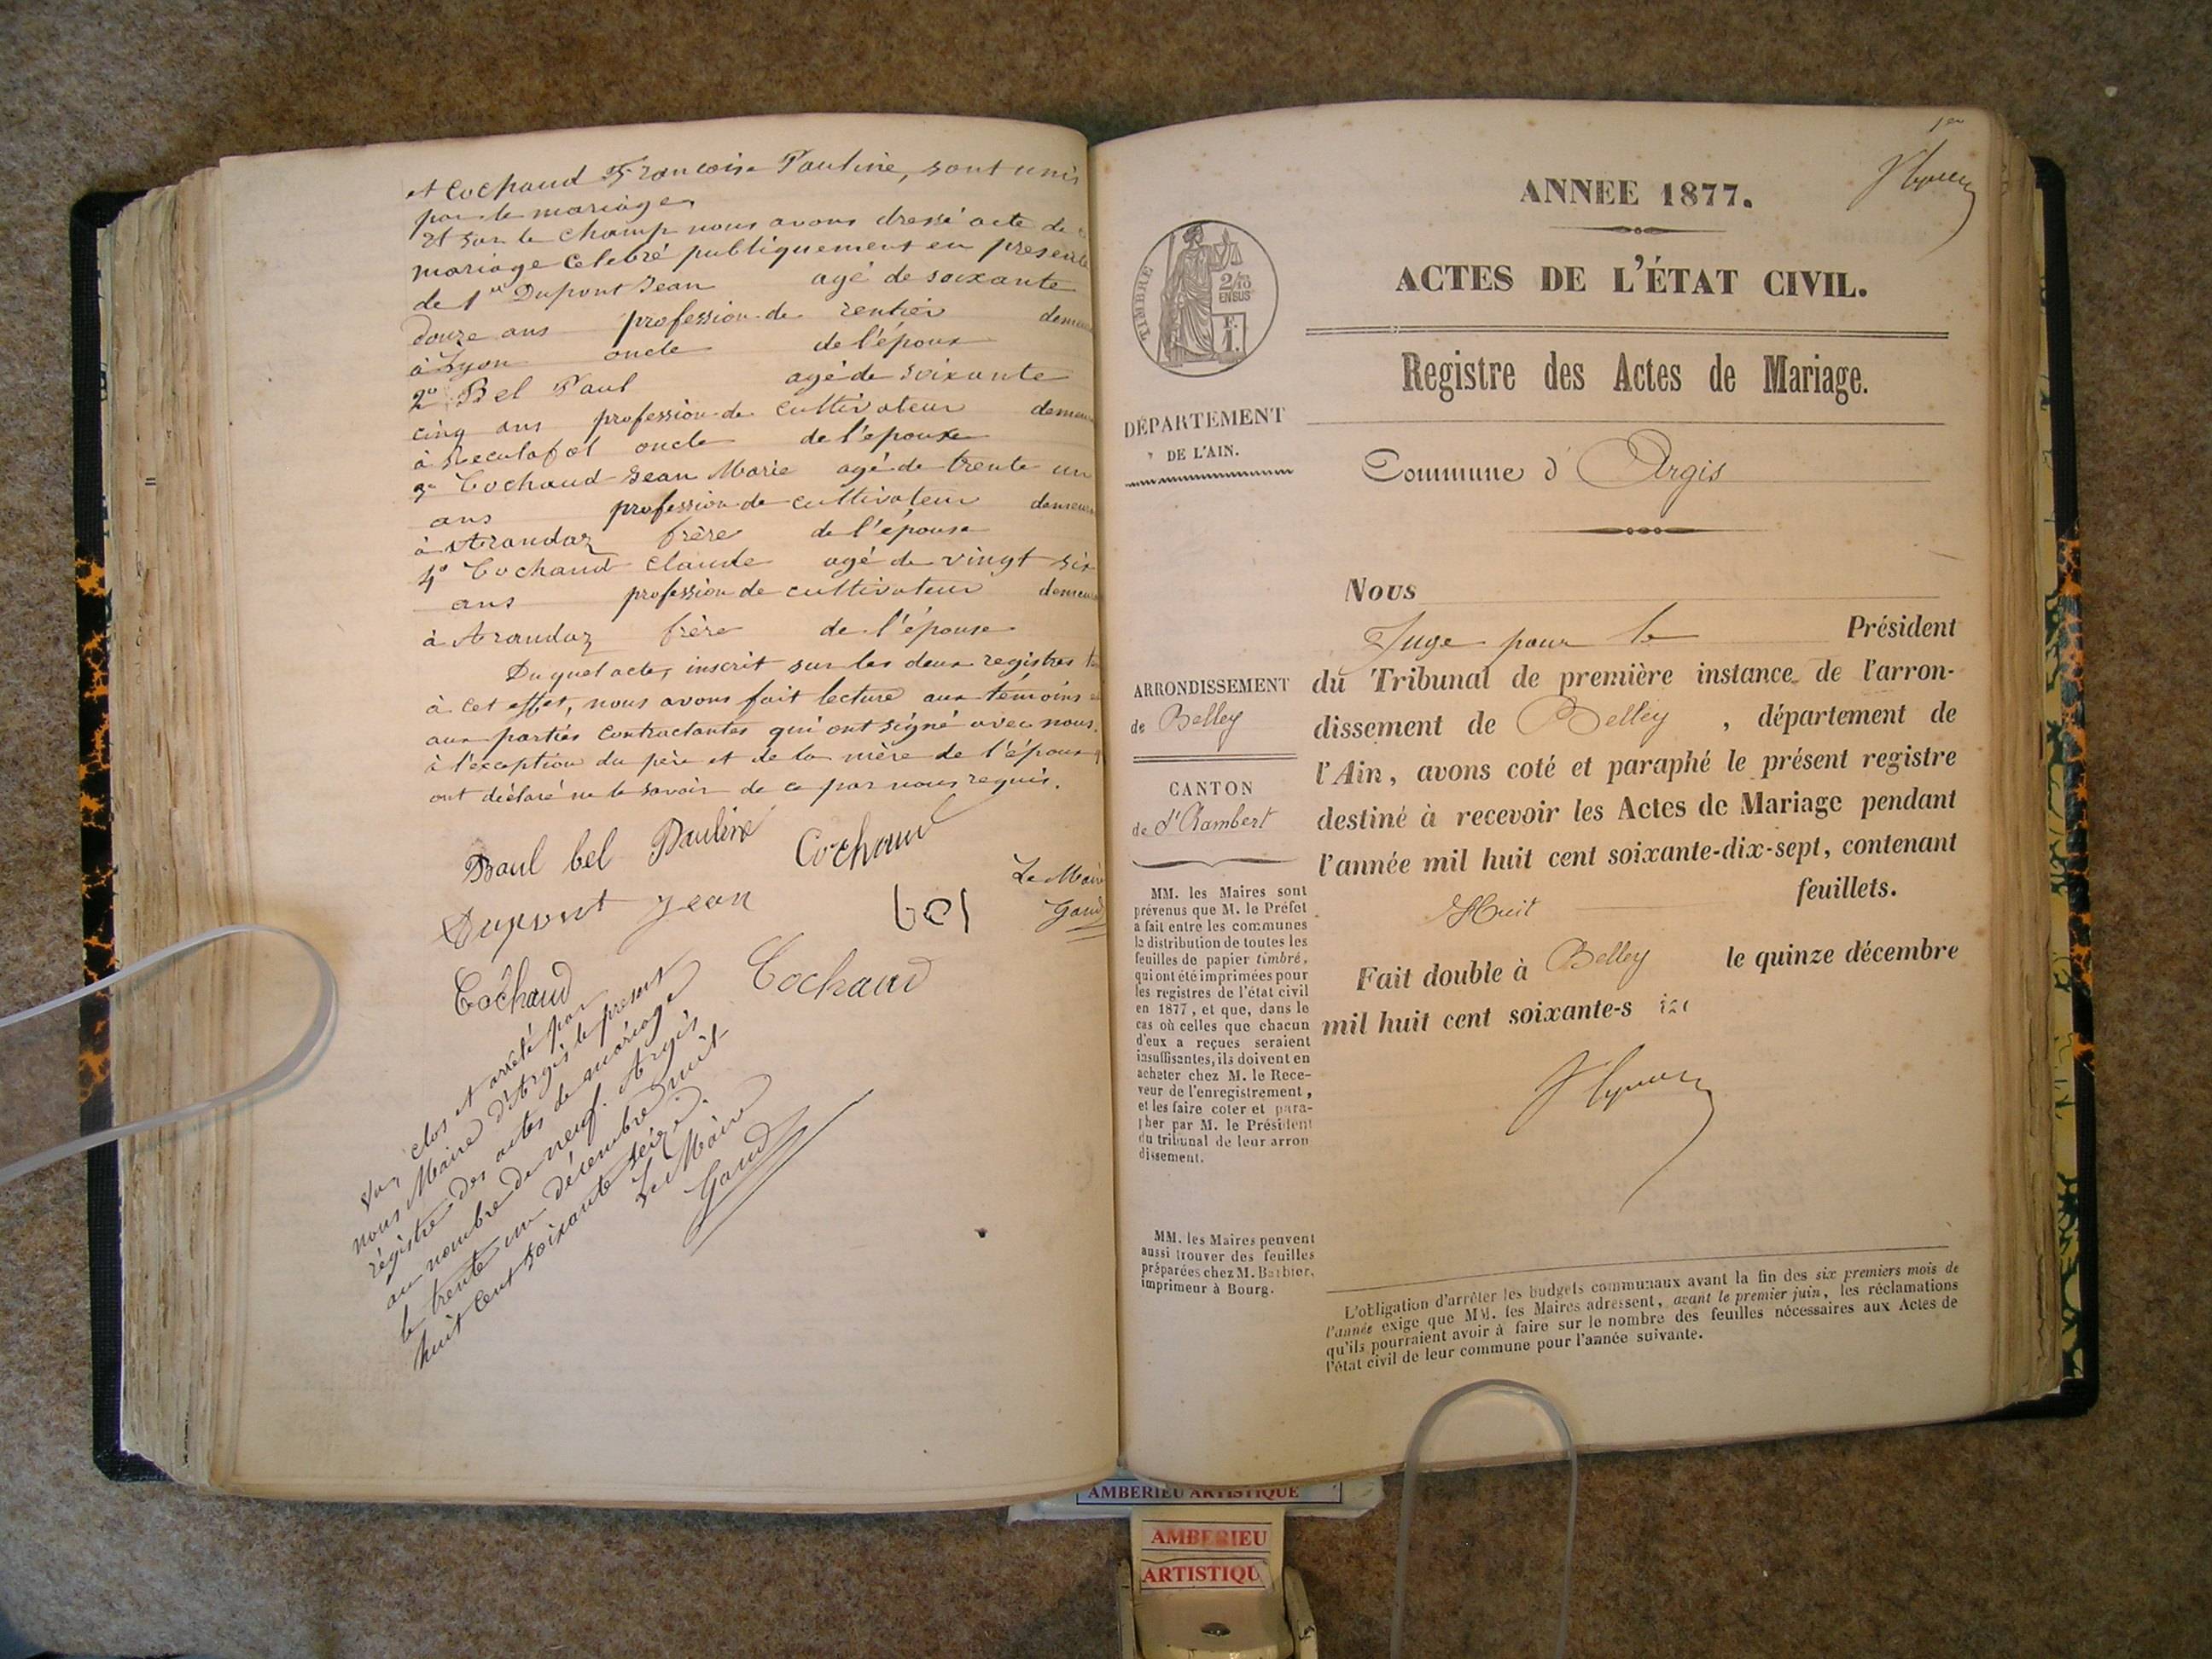 et Cochaud Francoise Pauline, sont unis
par le mariage.
Et sur le champ nous avons dressé acte de
mariage celebré publiquement en presence
de 1er Dupont Jean agé de soixante
douze ans profession de rentier demeu
à Lyon oncle de l'époux
2° Bel Paul agé de soixante
cinq ans profession de cultivateur demeu
à Reculafol oncle de l'épouse
3° Cochaud Jean Marie agé de trente un
ans profession de cultivateur demeu
à Arandaz frère de l'épouse
4° Cochaud Claude agé de vingt six
ans profession de cultivateur demeu
à Arandaz frère de l'épouse
Duquel acte, inscrit sur les deux registres
à cet effet, nous avons fait lecture aux témoins
aux parties contractantes qui ont signé avec nous.
à l'exception du père et de la mère de l'époux
ont déclaré ne le savoir de ce par nous requis.
Paul bel Pauline Cochaud
Dupont Jean bel
Le Maire
Gaud
Cochaud Cochaud
Vu, clos et arrêté par
nous Maire d'Argis le present
régistre des actes de mariage
au nombre de neuf. Argis
le trente un décembre mil
huit cent soixante seize.
Le Maire
Gaud
1er
ANNEE 1877.
ACTES DE L'ÉTAT CIVIL.
TIMBRE
2/10
EN SUS
F.
1.
Registre des Actes de Mariage.
DÉPARTEMENT
DE L'AIN.
Commune d'Argis
Nous
Juge pour le Président
du Tribunal de première instance de l'arron-
dissement de Belley, département de
l'Ain, avons coté et paraphé le présent registre
destiné à recevoir les Actes de Mariage pendant
l'année mil huit cent soixante-dix-sept, contenant
Huit feuillets.
Fait double à Belley le quinze décembre
mil huit cent soixante-s
ARRONDISSEMENT
de Belley
CANTON
de St Rambert
MM. les Maires sont
prévenus que M. le Préfet
a fait entre les communes
la distribution de toutes les
feuilles de papier timbré,
qui ont été imprimées pour
les registres de l'état civil
en 1877, et que, dans le
cas où celles que chacun
d'eux a reçues seraient
insuffisantes, ils doivent en
acheter chez M. le Rece-
veur de l'enregistrement,
et les faire coter et para-
pher par M. le Président
du tribunal de leur arron
dissement.
MM. les Maires peuvent
aussi trouver des feuilles
préparées chez M. Barbier,
imprimeur à Bourg.
L'obligation d'arrêter les budgets communaux avant la fin des six premiers mois de
l'année exige que MM. les Maires adressent, avant le premier juin, les réclamations
qu'ils pourraient avoir à faire sur le nombre des feuilles nécessaires aux Actes de
l'état civil de leur commune pour l'année suivante.
AMBERIEU ARTISTIQUE
AMBERIEU
ARTISTIQU